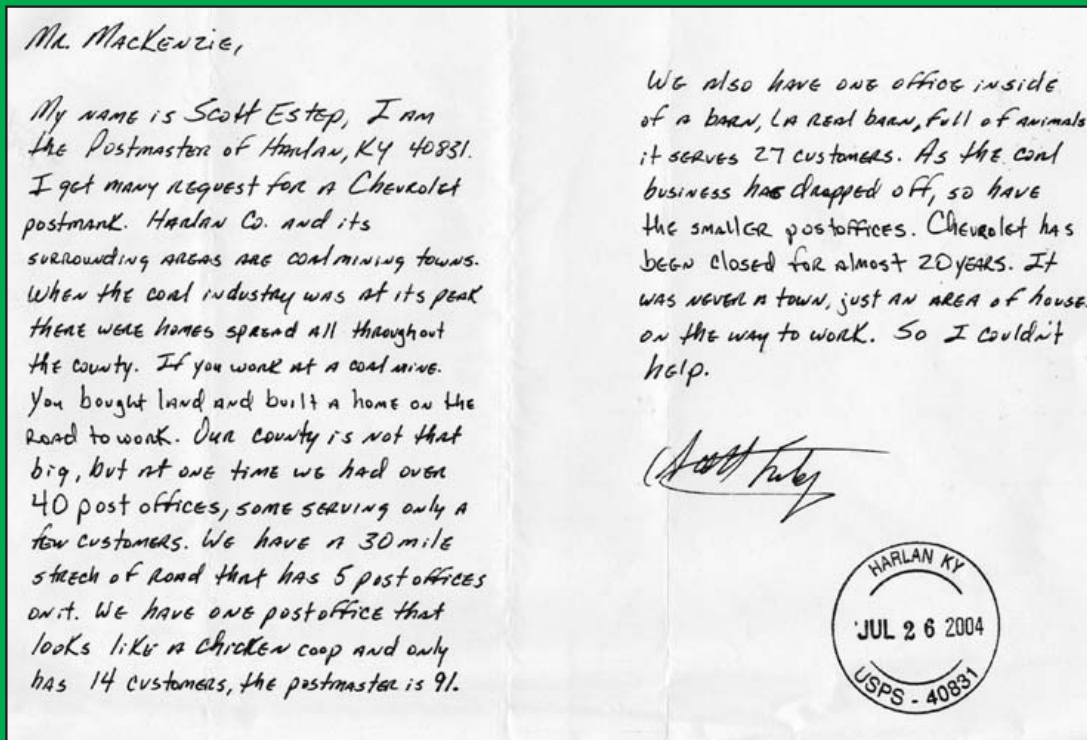 Mr. MacKenzie,
My name is Scott Estep, I am
the Postmaster of Harlan, KY 40831.
I get many request for a Chevrolet
postmark. Harlan Co. and its
surrounding areas are coal mining towns.
When the coal industry was at its peak
there were homes spread all throughout
the county. If you work at a coal mine.
You bought land and built a home on the
road to work. Our county is not that
big, but at one time we had over
40 post offices, some serving only a
few customers. We have a 30 mile
strech of road that has 5 post offices
on it. We have one post office that
looks like a chicken coop and only
has 14 customers, the postmaster is 91.
We also have one office inside
of a barn, (a real barn, full of animals
it serves 27 customers. As the coal
business has dropped off, so have
the smaller postoffices. Chevrolet has
been closed for almost 20 years. It
was never a town, just an area of houses
on the way to work. So I couldn't
help.
HARLAN KY
JUL 26 2004
USPS - 40831